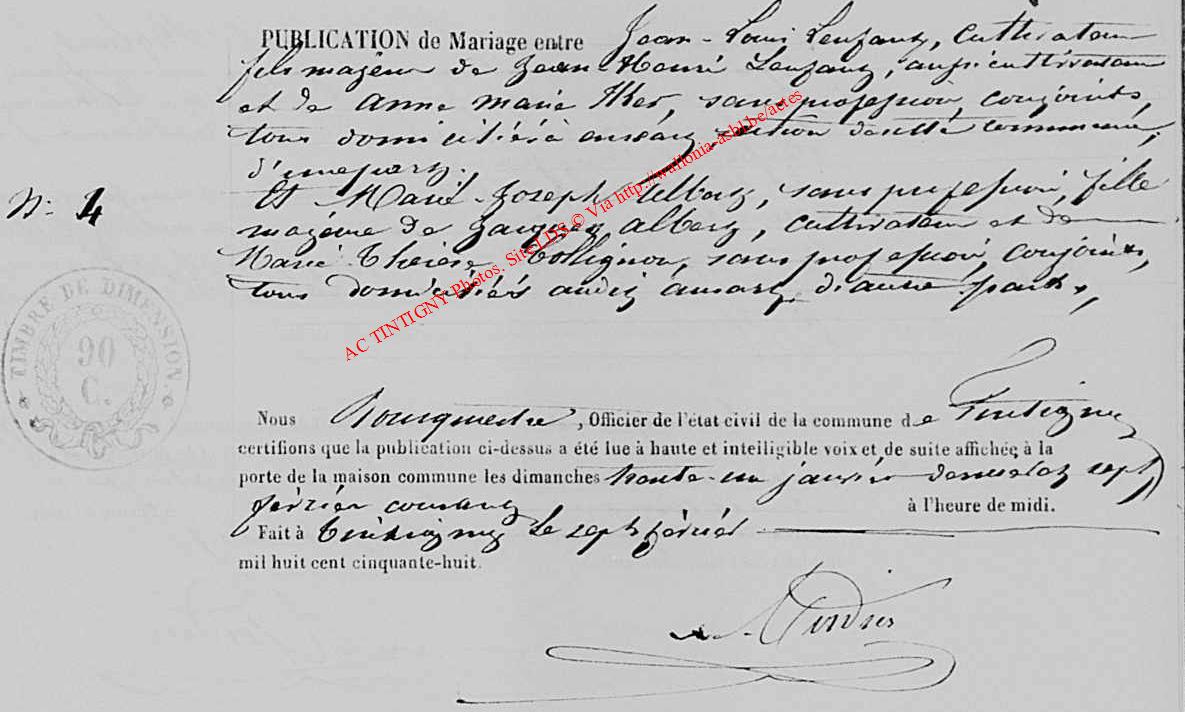 PUBLICATION de Mariage entre Jean-Louis Lenfant, Cultivateur
fils majeur de Jean-Henri Lenfant, aussi cultivateur
et de Anne Marie, sans profession, conjoints,
tous domiciliés à ansart, section de cette commune,
d'une part.
Et Marie-Joseph Albert, sans profession, fille
N° 4
majeure de Jacques albert, cultivateur et de
Marie Thérèse Collignon, sans profession, conjoints,
tous domiciliés audit ansart, d'autre part,
AC TINTIGNY Photos. Site LDS © Via http://wallonia-asbl.be/actes
TIMBRE DE DIMENSION.
90
C.
Nous Bourgmestre, Officier de l'état civil de la commune de Tintigny
certifions que la publication ci-dessus a été lue à haute et intelligible voix et de suite affichée à la
porte de la maison commune les dimanches trente-un janvier dernier et sept
février courant à l'heure de midi.
Fait à Tintigny le sept février
mil huit cent cinquante-huit.